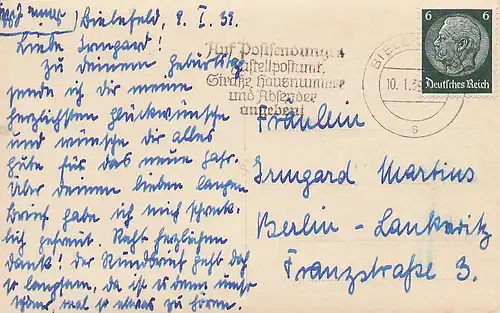 Bielefeld, 9. I. 39.
Liebe Irmgard!
Zu deinem Geburtstag
sende ich dir meine
herzlichsten Glückwünsche
und wünsche dir alles
Gute für das neue Jahr.
Über deinen lieben langen
Brief habe ich mich schreck-
lich gefreut. Recht herzlichen
Dank! Der Rundbrief geht doch
so langsam, da ist es denn
mal so etwas zu hören.
Auf Postsendungen
Zustellpostamt,
Straße, Hausnummer
und Absender
angeben!
10. 1. 39
s
6 6
Deutsches Reich
Fräulein
Irmgard Martins
Berlin - Lankwitz
Franzstraße 3.